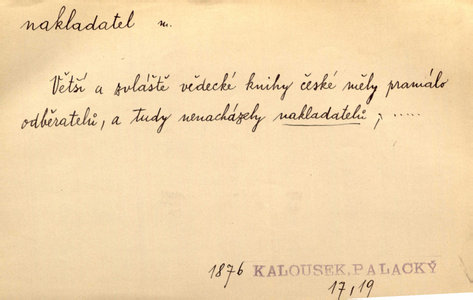 nakladatel m.
Větší a zvláště vědecké knihy české měly pramálo
odběratelů, a tudy nenacházely nakladatelů, .....
1876 KALOUSEK, PALACKÝ
17,19